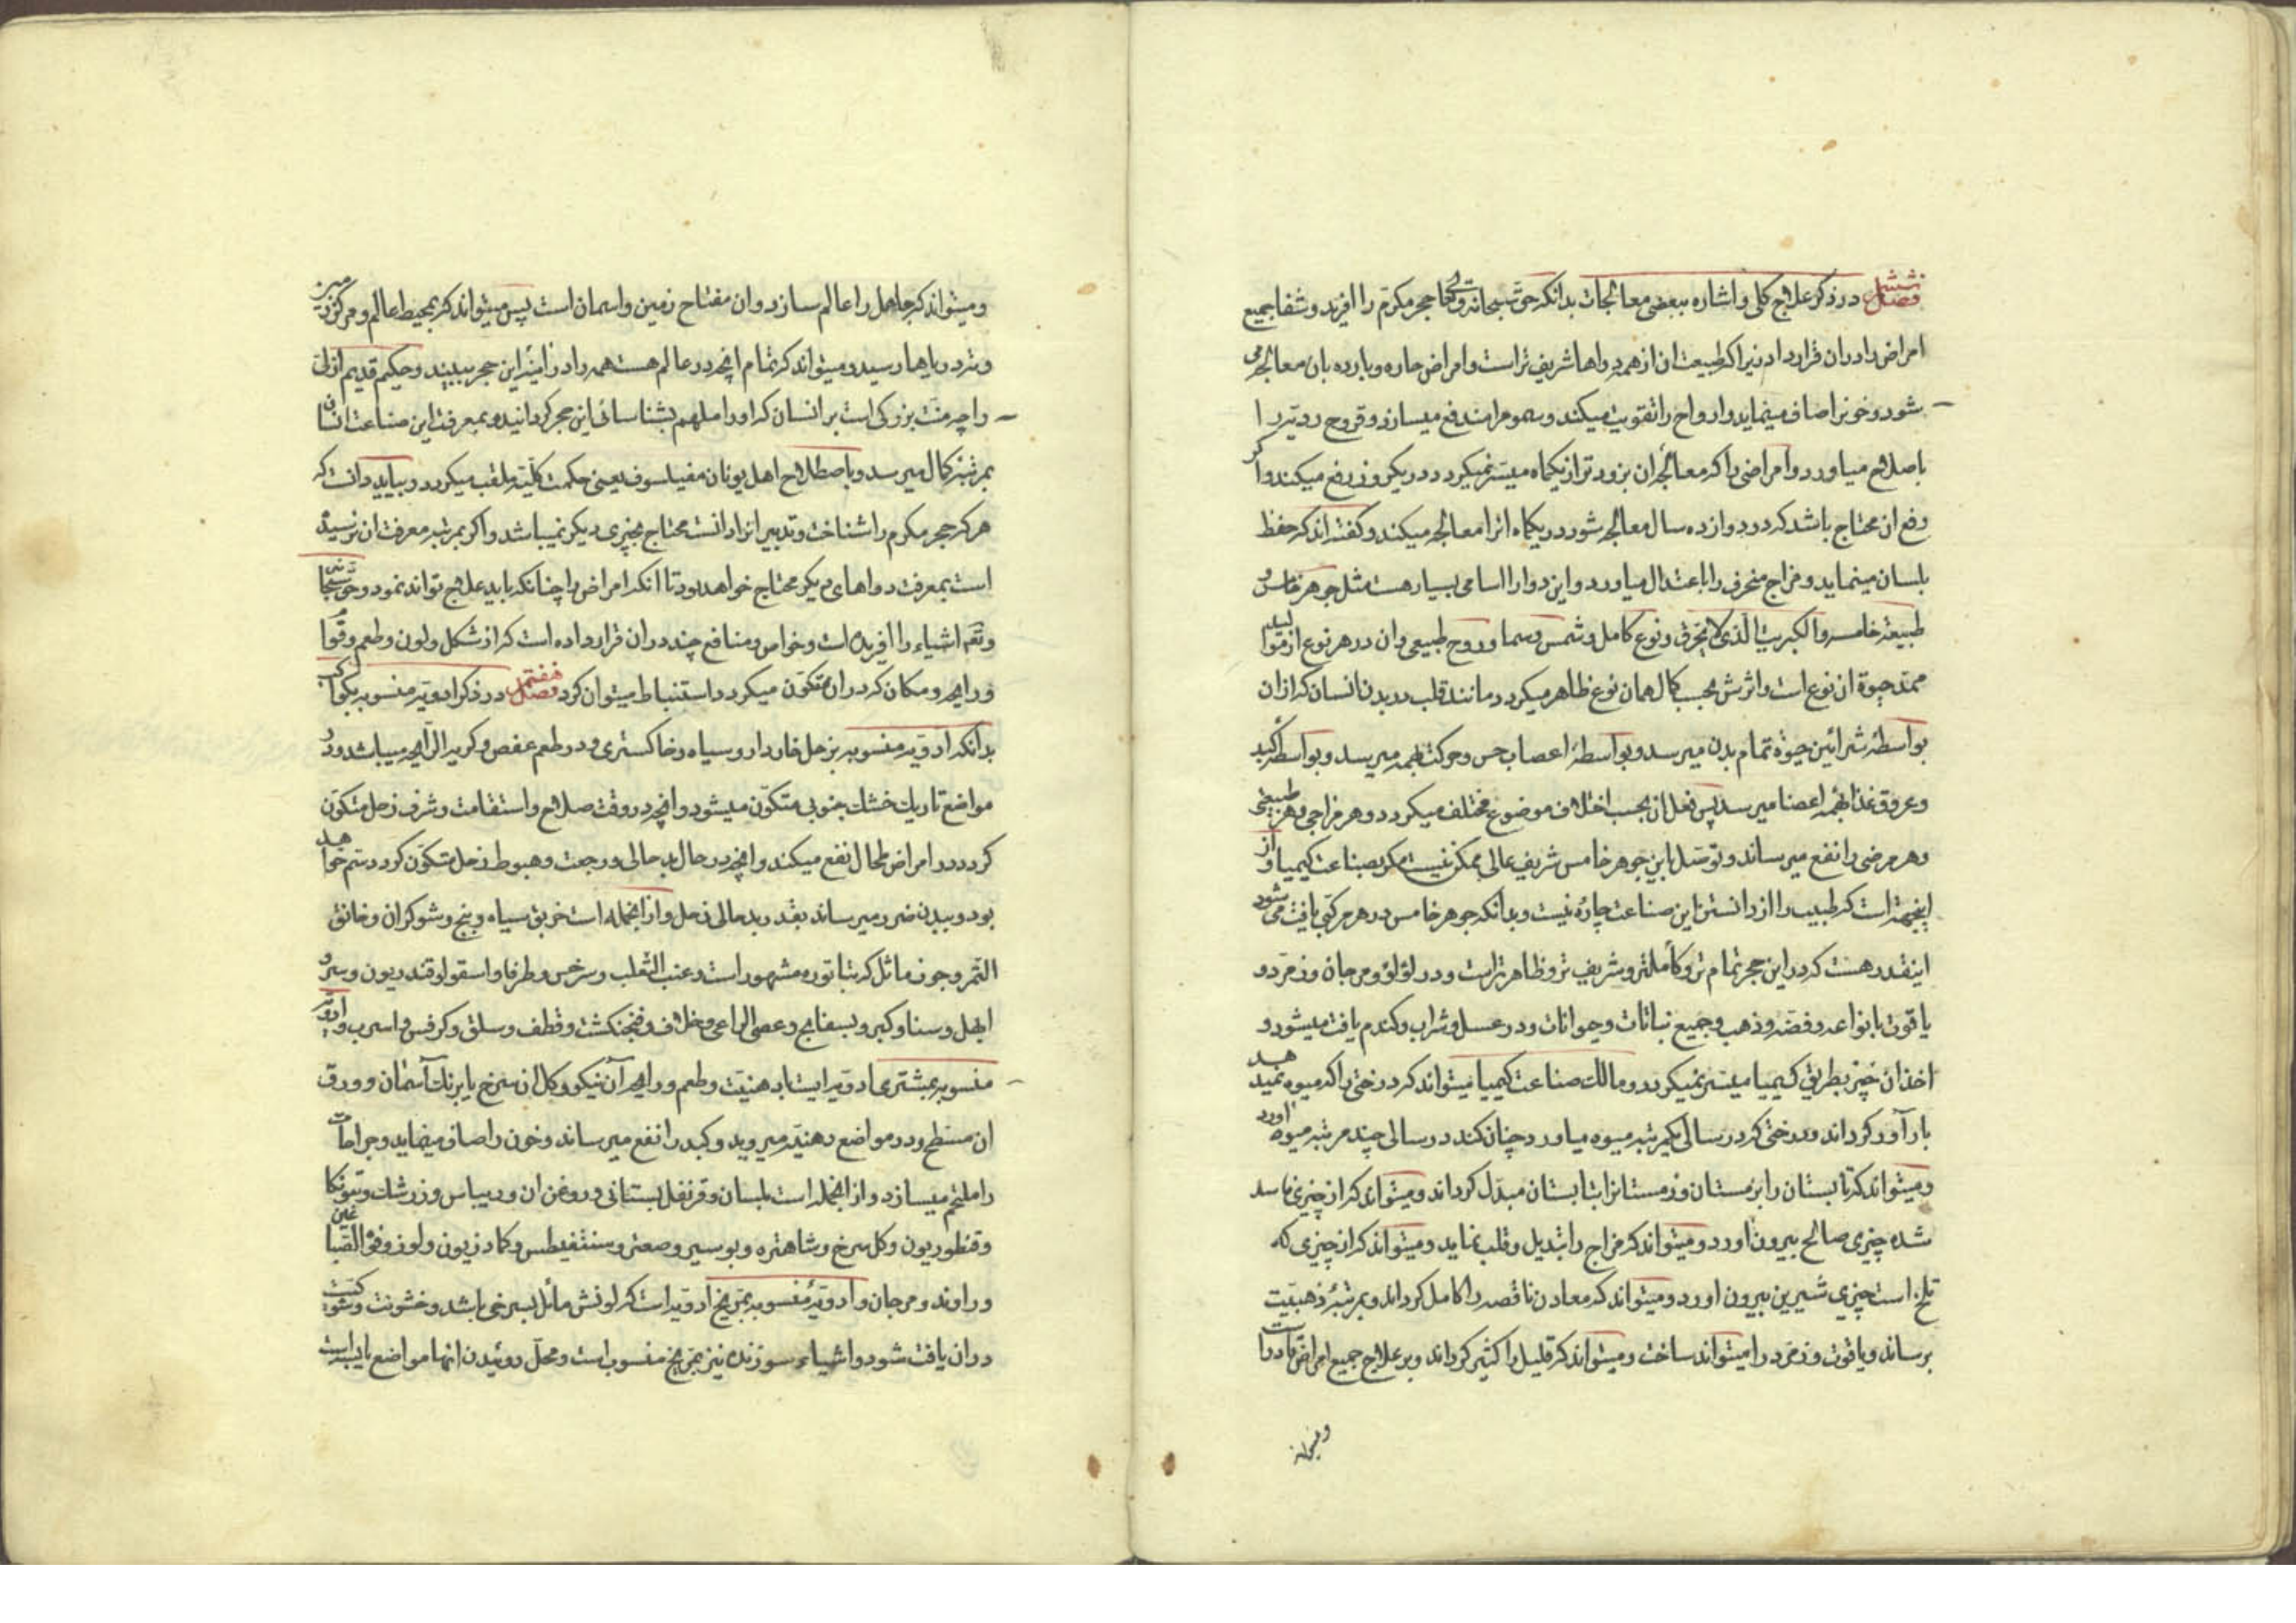 فصل ششم در ذکر علاج کلی و اشاره ببعضی معالجات بدانکه حق سبحانه وتعالی حجر مکرم را افرید و شفا جمیع
امراض را در ان قرار داد زیرا که طبیعت ان از همه دواها شریف تر است و امراض حاره و بارده بان معالجه می
شود و خونرا صاف مینماید و ارواح را تقویت میکند و سموم را مندفع میسازد و قروح ردیه را
باصلاح میاورد و امراضی را که معالجه ان بزودتر از یکماه میسر نمیکردد در یکروز رفع میکند و اکر
رفع ان محتاج باشد که در دوازده سال معالجه شود در یکماه انرا معالجه میکند و کفته اند که حفظ
بلسان مینماید و مزاج منحرف را باعتدال میاورد و این دوا را اسامی بسیار هست مثل جوهر خامس و
طبیعة خامسه والکبریت الذی لا یحترق و نوع کامل و شمس و سما و روح طبیعی و ان در هر نوع از موالید
ممد حیوة ان نوع است و اثرش بحسب کمال همان نوع ظاهر میکردد مانند قلب در بدن انسان که از ان
بواسطهٔ شرائین حیوة تمام بدن میرسد و بواسطهٔ اعصاب حس و حرکت بهمه میرسد و بواسطه کبد
و عروق غذا بهمه اعضا میرسد پس فعل ان بحسب اختلاف موضوع مختلف میکردد و هر مزاجی و هر طبیعتی
و هر مرضی را نفع میرساند و توسل باین جوهر خامس شریف عالی ممکن نیست مکر بصناعت کیمیا و از
اینجهة است که طبیب را از دانستن این صناعت چاره نیست و بدانکه جوهر خامس در هر مرکبی یافت می شود
اینقدر هست که در این حجر تمام تر و کاملتر و شریف تر و ظاهر تر است و در لؤلؤ و مرجان و زمرد و
یاقوت بانواعه و فضه و ذهب و جمیع نباتات و حیوانات و در عسل و شراب و کندم یافت میشود و
اخذ ان جز بطریق کیمیا میسر نمیکردد و مالک صناعت کیمیا میتواند که درختی را که میوه نمیدهد
بار آور کرداند و درختی که در سالی یکمرتبه میوه میاورد چنان کند در سالی چند مرتبه میوه اورد
و میتواند که تابستان را بزمستان و زمستانرا بتابستان مبدل کرداند و میتواند که از چیزی فاسد
شده چیزی صالح بیرون اورد و میتواند که مزاج را تبدیل و قلب نماید و میتواند که از چیزی که
تلخ است چیزی شیرین بیرون اورد و میتواند که معادن ناقصه را کامل کرداند و بمرتبهٔ ذهبیت
برساند و یاقوت و زمرد را میتواند ساخت و میتواند که قلیل را کثیر کرداند و بر علاج جمیع امراض قادر
و میتواند که جاهل را عالم سازد و ان مفتاح زمین و اسمان است پس میتواند که بمحیط عالم و مرکز زمین
و ته دریاها رسید و میتواند که تمام انچه در عالم هست همه را در اینهٔ این حجر ببیند و حکیم قدیم ازلی
را چه منت بزرکی است بر انسان که او را ملهم بشناسائی این حجر کردانیده و بمعرفت این صناعت انسان
بمرتبهٔ کمال میرسد و باصطلاح اهل یونان مفیلسوف یعنی حکمت کلیه ملقب میکردد و بباید دانست که
هر که حجر مکرم را شناخت و تدبیر انرا دانست محتاج بچیزی دیکر نمیباشد و اکر بمرتبه معرفت ان نرسیده
است بمعرفت دواهای دیکر محتاج خواهد بود تا انکه امراض را چنانکه باید علاج تواند نمود و حق سبحانه
و تعالی اشیاء را افریده است و خواص و منافع چند در ان قرار داده است که از شکل و لون و طعم و قوام
و رایحه و مکان که در ان متکون میکردد استنباط میتوان کرد فصل هفتم در ذکر ادویه منسوبه بکواکب
بدانکه ادویه منسوبه بزحل خاردار و سیاه و خاکستری و در طعم عفص و کریه الرایحه میباشد و در
مواضع تاریک خشک جنوبی متکون میشود و انچه در وقت صلاح و استقامت و شرف زحل متکون
کردد در امراض طحال نفع میکند و انچه در حال بد حالی و رجعت و هبوط زحل متکون کردد سم خواهد
بود و ببدن ضرر میرساند بقدر بد حالی زحل و از انجمله است خربق سیاه و بنج و شوکران و خانق
النمر و جوز ماثل که بتاتوره مشهور است و عنب الثعلب و سرخس و طرفا و اسقولوقندریون و سرو
ابهل و سنا و کبر و بسفایج و عصی الراعی و خلاف و فنجنکشت و قطف و سلق و کرفس و اسرب و ادویه
منسوبه بمشتری ادویه ایست با دهنیت و طعم و رایحه آن نیکو و کل ان سرخ یا برنک آسمان و ورق
ان مسطح و در مواضع دهنیه میروید و کبد را نفع میرساند و خون را صاف مینماید و جراحات
را ملتحم میسازد و از انجمله است بلسان و قرنفل بستانی و روغن ان و ریباس و زرشک و
و قنطوریون و کل سرخ و شاهتره و بوسیر و صعتر و سنتفیطس و کمادریون و لوز و فوة الصباغین
و راوند و مرجان و ادویهٔ منسوبه بمریخ ادویه است که لونش مائل بسرخی باشد و خشونت و
در ان یافت شود و اشیاء سوزنده نیز بمریخ منسوب است و محل روئیدن انها مواضع یابسه است